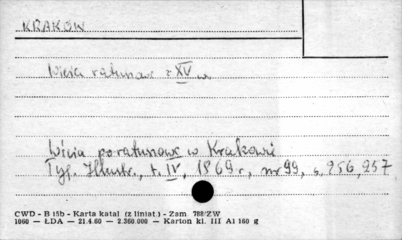 KRAKÓW
Wieża ratuszowa z XV w
Wieża poratuszowa w Krakowie
Tyg. Illustr., t. IV, 1869 r, nr 99, s. 256, 257
CWD - B 15b - Karta katal (z liniat.) - Zam. 788/ZW
1060 — ŁDA — 21.4.60 — 2.360.000 — Karton kl. III A1 160 g